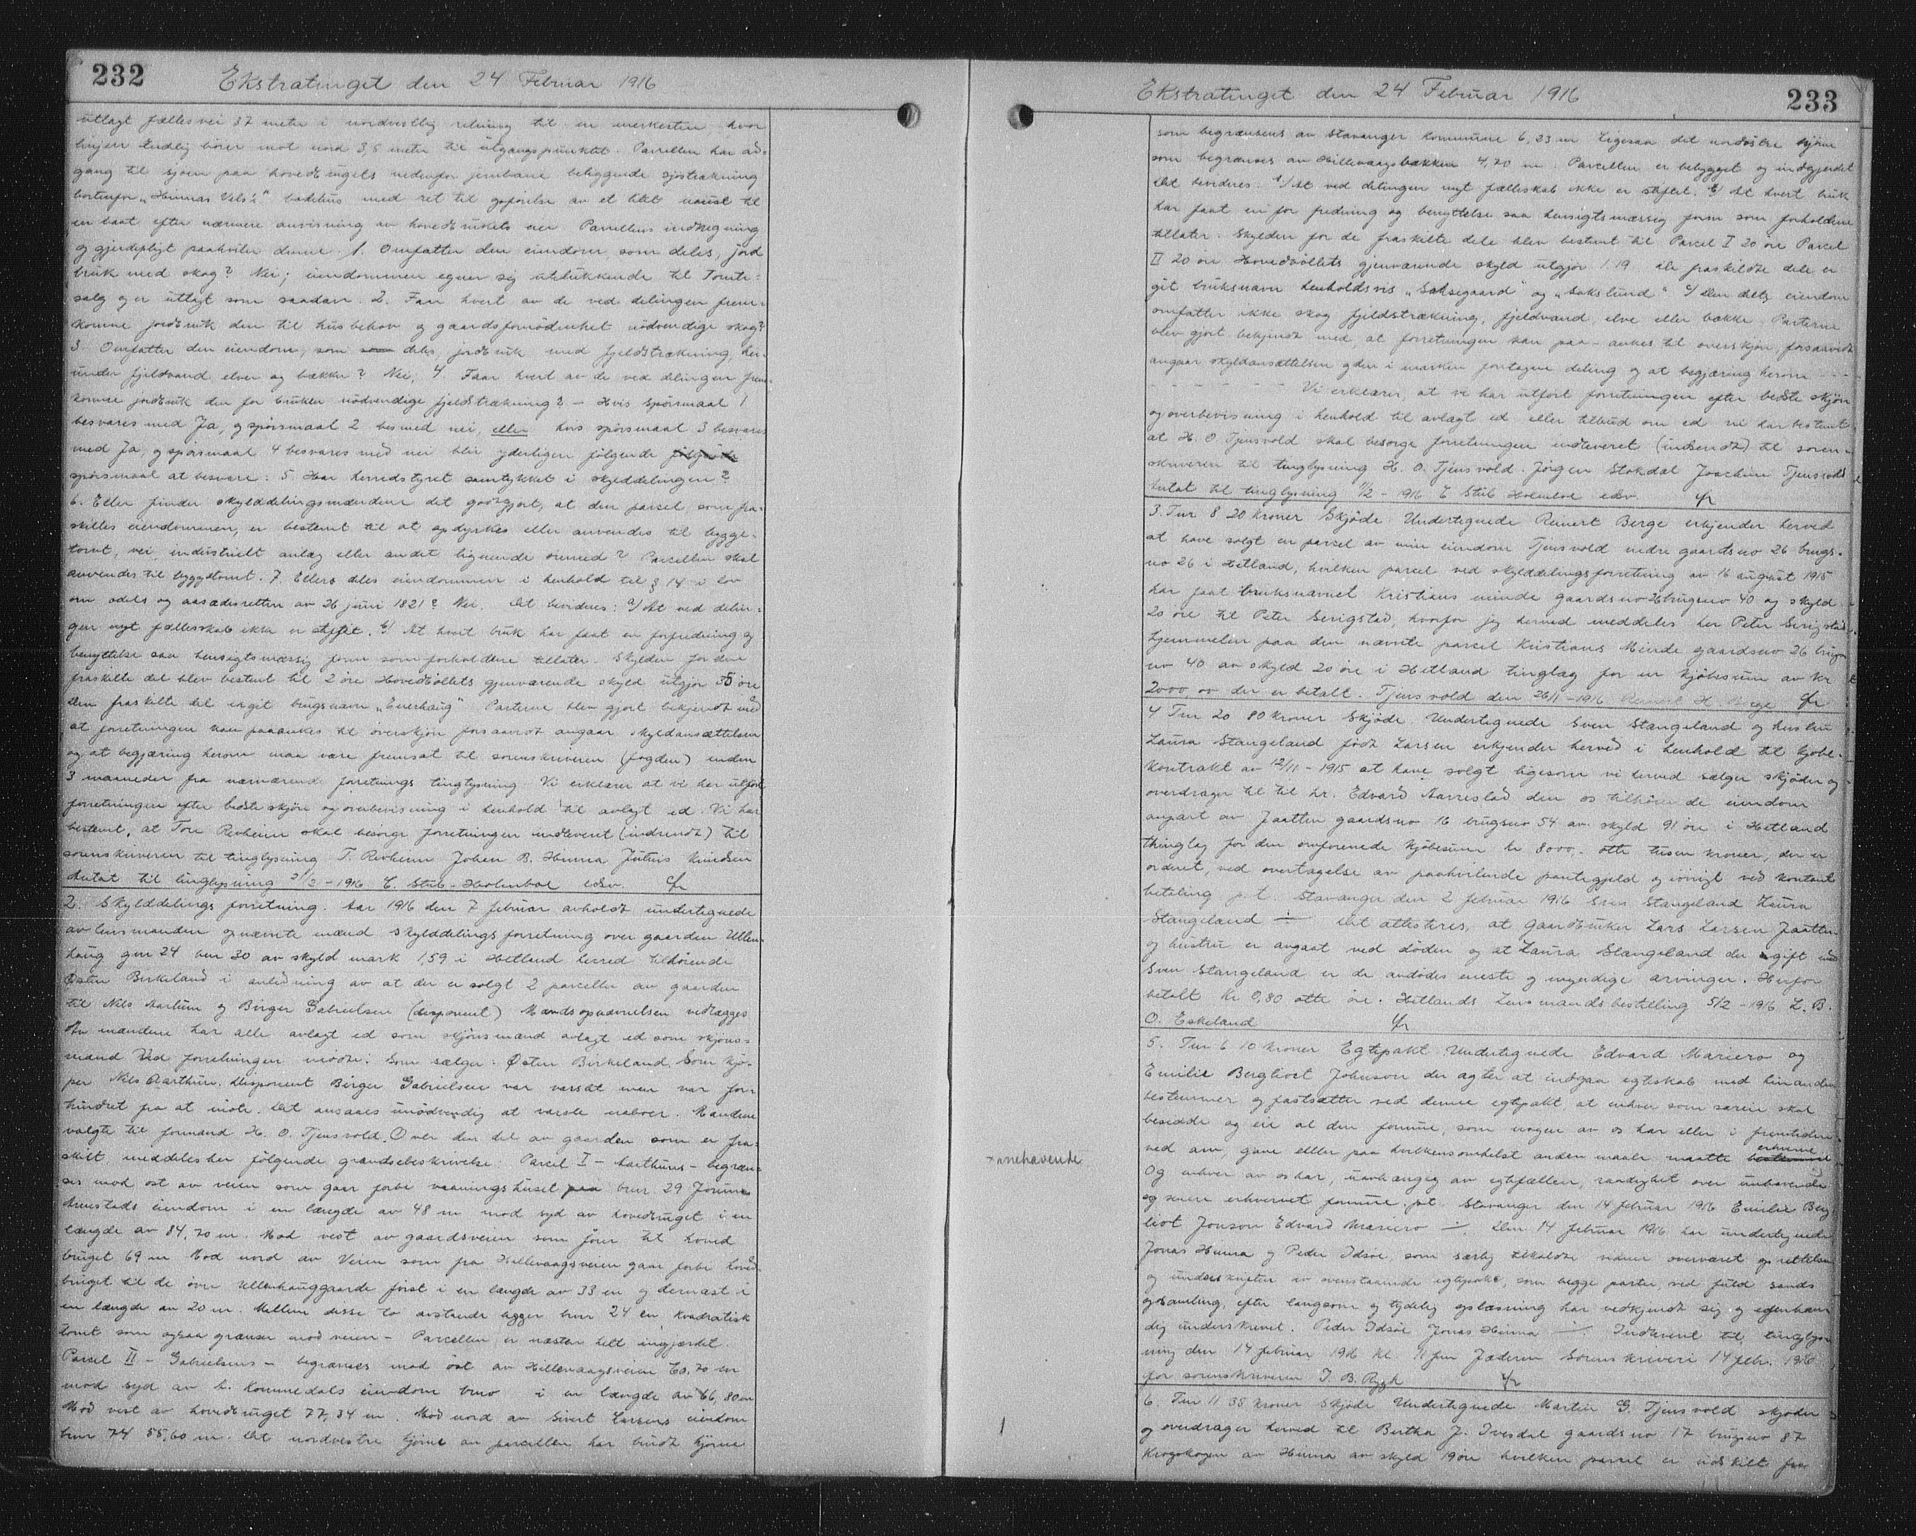 232
Ekstratinget den 24 Februar 1916
utlagt fællesvei 37 meter i nordvestlig retning til en merkesten hvor
linjen Endlig bøier mot nord 3,5 meter til utgangspunktet. Parcellen har ad-
gang til sjøen paa hovedbrugets nedenfor jernbane beliggende sjøstrækning
bortenfor „Hinnas Vels" badehus med ret til opførelse av et litet naust til
en baat efter nærmere anvisning av hovedbrukets eier Parcellens indhegning
og gjerdepligt paahviler denne. 1. Omfatter den eiendom, som deles, jord
bruk med skog? Nei; eiendommen egner sig utelukkende til Tomte-
salg og er utlagt som saadan. 2. Faar hvert av de ved delingen frem-
komne jordbruk den til husbehov og gaardsfornødenhet nødvendige skog?
3 Omfatter den eiendom, som deles, jordbruk med fjeldstrækning, her-
under fjeldvand, elver og bækker? Nei; 4. Faar hvert av de ved delingen frem-
komne jordbruk den for bruken nødvendige fjeldstrækning? – Hvis spørsmaal 1
besvares med Ja, og spørsmaal 2 bes med nei, eller hvis spørsmaal 3 besvares
med Ja, og spørsmaal 4 besvares med nei blir yderligere følgende følgende
spørsmaal at besvare: 5. Har herredstyret samtykket i skylddelingen?
6. Eller finder skylddelingsmændene det godtgjort, at den parcel, som fra-
skilles eiendommen, er bestemt til at opdyrkes eller anvendes til bygge-
tomt, vei, industrielt anlæg eller andet lignende øiemed? Parcellen skal
anvendes til byggetomt. 7. Ellers deles eiendommen i henhold til § 14 i lov
om odels og aasædesretten av 26 juni 1821? Nei. Det bevidnes: a/ At ved delin-
gen nyt fællesskab ikke er stiftet. b/ At hvert bruk har faat en for fredning og
benyttelse saa hensigtsmæssig form som forholdene tillater. Skylden for den
fraskilte del blev bestemt til 2 øre Hovedbølets gjenværende skyld utgjør 35 øre
Den fraskilte del er git brugsnavn „Einerhaug" Parterne blev gjort bekjendt med
at forretningen kan paaankes til overskjøn forsaavidt angaar skyldansættelsen
og at begjæring herom maa være fremsat til sorenskriveren (fogden) inden
3 maaneder fra nærværende forretnings tinglysning Vi erklærer at vi har utført
forretningen efter bedste skjøn og overbevisning i henhold til avlagt ed. Vi har
bestemt, at Tore Revheim skal besørge forretningen indleveret (indsendt) til
sorenskriveren til tinglysning T. Revheim Johan B. Hinna Julius Knudsen
Antat til tinglysning 2/2 – 1916 E. Stub-Holmboe edsv.
2. Skylddelings forretning. Aar 1916 den 7 februar avholdt undertegnede
av lensmanden opnævnte mænd skylddelingsforretning over gaarden Ullen-
haug gnr 24 bnr 20 av skyld mark 1,59 i Hetland herred tilhørende
Østen Birkeland i anledning av at der er solgt 2 parceller av gaarden
til Nils Aarthun og Birger Gabrielsen (disponent) Mændsopnævnelsen vedlægges
Av mændene har alle avlagt ed som skjønsmænd avlagt ed som skjøns-
mænd Ved forretningen mødte: Som sælger: Østen Birkeland Som kjø-
per Nils Aarthun. Disponent Birger Gabrielsen var varslet men var for-
hindret fra at møte. Det ansaaes unødvendig at varsle naboer. Mændene
valgte til formand H. O. Tjensvold. Over den del av gaarden som er fra-
skilt meddeles her følgende grændsebeskrivelse: Parcel I – Aarthuns – begræn-
ses mod øst av veien som gaar forbi vaaningshuset paa bnr 29
eiendom i en længde av 48 m mod syd av hovedbruget i en
længde av 84,70 m. Mod vest av gaardsveien som fører til hoved
bruget 69 m Mod nord av Veien som fra Hillevaagsveien gaar forbi hoved-
bruget til de øvre Ullenhauggaarde først i en længde av 33 m og dernæst i
en længde av 20 m. Mellem disse to avstande ligger bnr 24 en kvadratisk
tomt som ogsaa grænser mod veien – Parcellen er næsten helt ingjærdet.
Parcel II – Gabrielsens – begrænses mod øst av Hillevaagsveien 60,70 m
mod syd av L. Kommedals eiendom bno i en længde av 66,80 m
Mod vest av hovedbruget 77,34 m. Mod nord av Sivert Larsens eiendom
bnr 74 55,60 m. Det nordvestre hjørne av parcellen har brudt hjørne
233
Ekstratinget den 24 Februar 1916
som begrænses av Stavanger Kommune 6,23 m Ligesaa det nordøstre hjørne
som begrænses av Hillevaagsbækken 4,20 m. Parcellen er bebygget og indgjerdet
Det bevidnes: a/ At ved delingen nyt fælleskab ikke er stiftet. b/ At hvert bruk
har faat en for fredning og benyttelse saa hensigtsmæssig form som forholdene
tillater. Skylden for de fraskilte dele blev bestemt til Parcel I 20 øre Parcel
II 20 øre Hovedbøllets gjenværende skyld utgjør 1.19 De fraskildte dele er
git bruksnavn henholdsvis „Solsegaard" og „Sokslund" c/ Den delte eiendom
omfatter ikke skog fjeldstrækning, fjeldvand, elve eller bække. Parterne
blev gjort bekjendt med at forretningen kan paa-ankes til overskjøn, forsaavidt
angaar skyldansættelsen og den i marken foretagne deling og at begjæring herom – –
– – – – – Vi erklærer, at vi har utført forretningen efter bedste skjøn
og overbevisning i henhold til avlagt ed eller tilbud om ed vi har bestemt
at H. O. Tjensvold skal besørge forretningen indleveret (indsendt) til soren-
skriveren til tinglysning H. O. Tjensvold. Jørgen Stokdal Joachim Tjensvold
Antat til tinglysning 11/2 – 916 E Stub Holmboe edsv.
3. Tnr 8 20 kroner Skjøde Undertegnede Reinert Berge erkjender herved
at have solgt en parcel av min eiendom Tjensvold indre gaardsno 26 brugs-
no 26 i Hetland, hvilken parcel ved skylddelingsforretning av 16 august 1915
har faat bruksnavnet Kristians minde gaardsno 26 brugsno 40 og skyld
20 øre til Peter Serigstad, hvorfor jeg herved meddeles her Peter Serigstad
hjemmelen paa den nævnte parcel Kristians Minde gaardsno 26 brugs-
no 40 av skyld 20 øre i Hetland tinglag for en kjøbesum av kr
2000,00 der er betalt. Tjensvold den 26/1 – 1916 Reinert H. Berge
4 Tnr 20 80 kroner Skjøde Undertegnede Sven Stangeland og hustru
Laura Stangeland født Larsen erkjender herved i henhold til kjøbe-
kontrakt av 12/11 – 1915 at have solgt ligesom vi herved sælger skjøder og
overdrager til til hr. Edvard Aarrestad den os tilhørende eiendom
anpart av Jaatten gaardsno 16 brugsno 54 av skyld 91 øre i Hetland
thinglag for den omforenede kjøbesum kr 8000. otte tusen kroner, der er
ordnet, ved overtagelse av paahvilende pantegjeld og iøvrigt ved kontant
betaling p.t. Stavanger den 2 februar 1916 Sven Stangeland Laura
Stangeland ÷ Det attesteres, at gaardbruker Lars Larsen Jaatten
og hustru er avgaat ved døden og at Laura Stangeland der er gift med
Sven Stangeland er de avdødes eneste og myndige arvinger. Herfor
betalt Kr 0,80 otte øre. Hetlands Lensmandsbestilling 5/2 – 1916 L. B.
O. Eskeland
5. Tnr 6 10 kroner Egtepakt Undertegnede Edvard Mariero og
Emilie Bergliot Johnson der agter at indgaa egteskab med hinanden
bestemmer og fastsætter ved denne egtepakt at enhver som særeie skal
besidde og eie al den formue, som nogen av os har eller i fremtiden
ved arv, gave eller paa hvilkensomhelst anden maate maatte bestemme erhverve
Og enhver av os har, uavhængig av egtefællen, raadighet over innhavende
× innehavende
og senere erhvervet formue p.t. Stavanger den 14 februar 1916 Emilie Berg
liot Jonson Edvard Mariero ÷ Den 14 februar 1916 har undertegnede
Jonas Hinna og Peder Idsøe, som særlig tilkaldte vidner overværet oprettelsen
og underskriften av ovenstaaende egtepakt, som begge parter, ved fuld sands
og samling, efter langsom og tydelig oplæsning har vedkjendt sig og egenhæn
dig underskrevet. Peder Idsøe Jonas Hinna ÷ Indleveret til tinglys-
ning den 14 februar 1916 kl. 11 fm Jæderen Sorenskriveri 14 feb. 1916
for sorenskriveren J. B. Rygh
6. Tnr 11 35 kroner Skjøde Undertegnede Martin G. Tjensvold skjøder
og overdrager herved til Bertha J. Ivesdal gaardsno 17 brugsno 87
Krogshagen av Hinna av skyld 19 øre hvilken parcel er utskilt fra